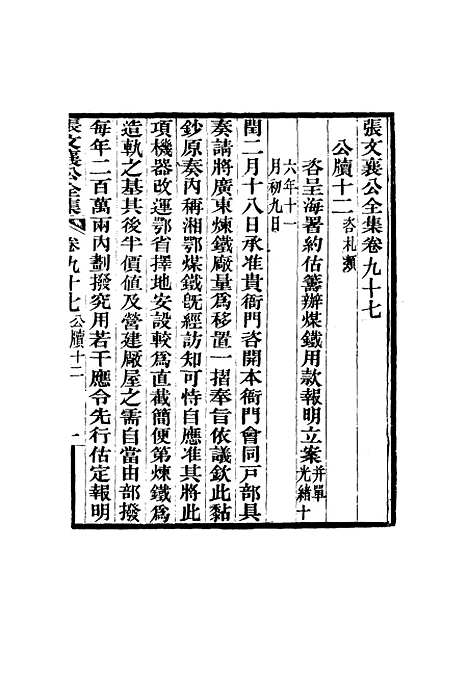 張文襄公全集卷九十七
公牘十二 咨札類
咨呈海署約估籌辦煤鐵用款報明立案 并單 光緒十
六年十一
月初九日
閏二月十八日承准貴衙門咨開本衙門會同戸部具
奏請將廣東煉鐵廠量爲移置一摺奉旨依議欽此黏
鈔原奏內稱湘鄂煤鐵旣經訪知可恃自應准其將此
項機器改運鄂省擇地安設較爲直截簡便第煉鐵爲
造軌之基其後半價值及營建廠屋之需自當由部撥
每年二百萬兩內劃撥究用若干應令先行估定報明
張文襄公全集 卷九十七 公牘十二 一